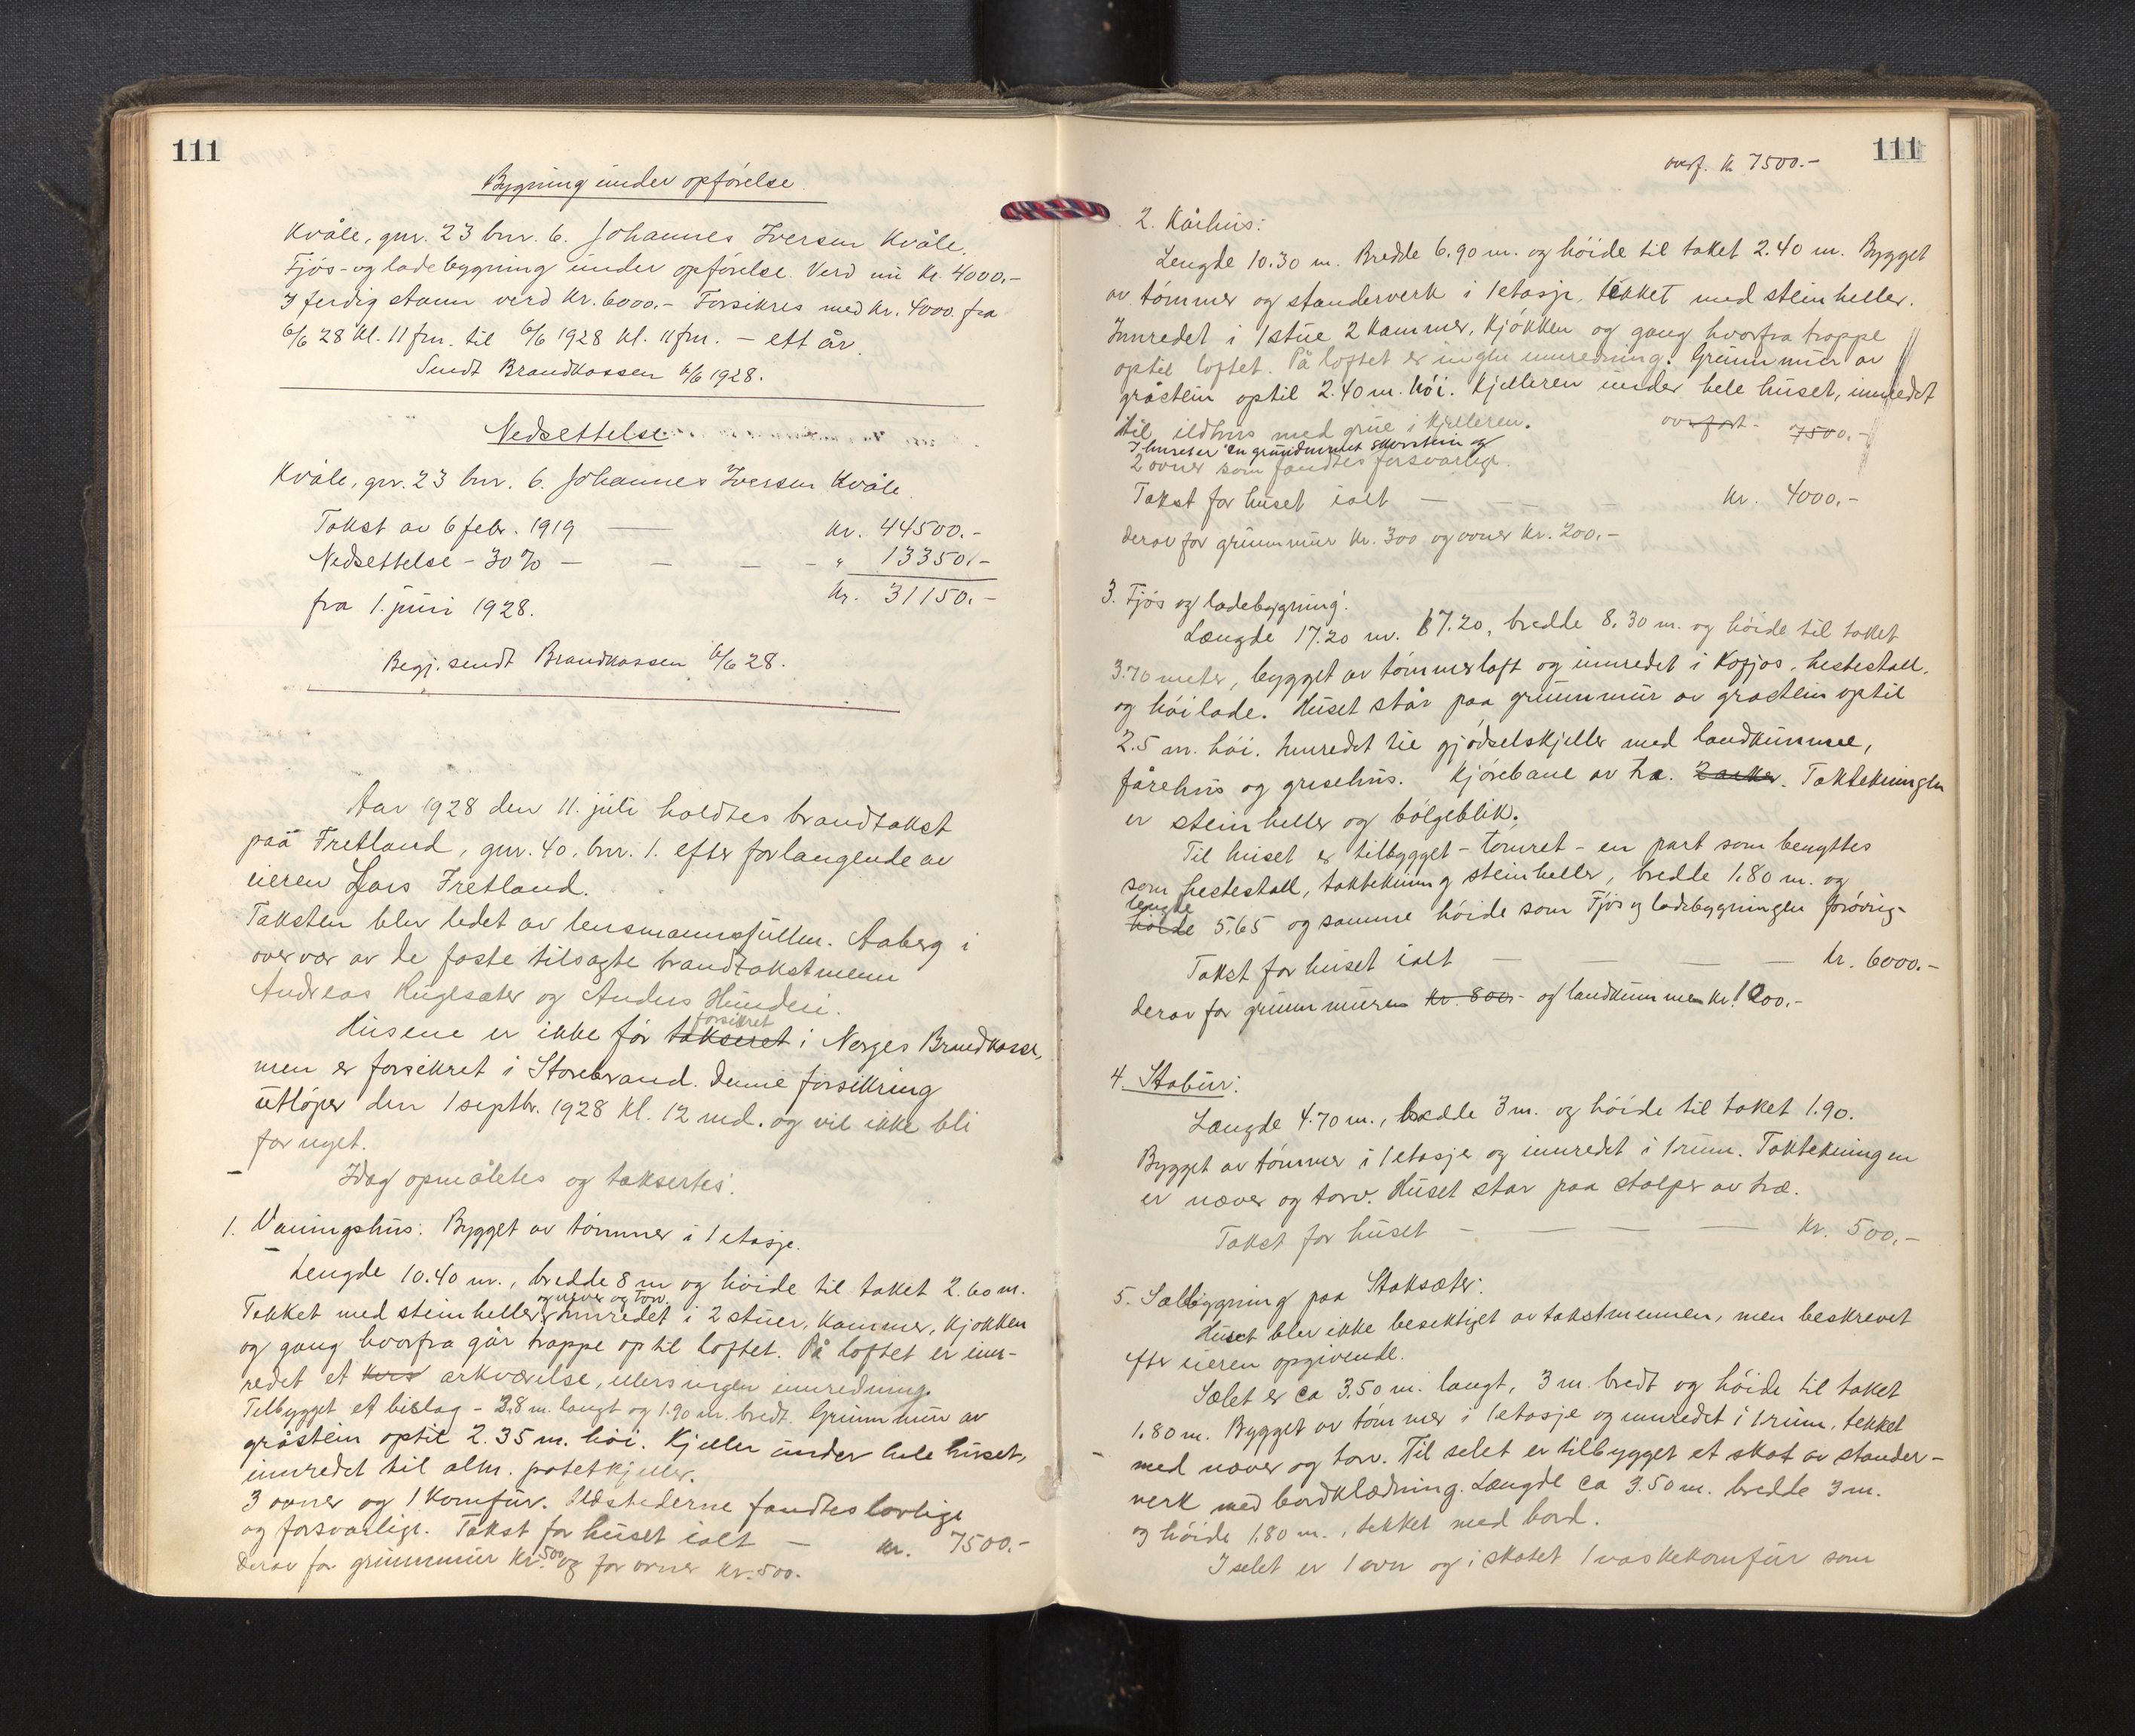 111
Bygning under opførelse.
Kvåle, gnr. 23 bnr. 6. Johannes Iversen Kvåle.
Fjøs- og ladebygning under opførelse. Verd nu kr. 4000.-
I ferdig stann verd kr. 6000.- Forsikres med kr. 4000 fra
6/6 28 kl. 11 fm. til 6/6 1928 kl. 11 fm. - ett år.
Sendt Brandkassen 6/6 1928.
Nedsettelse
Kvåle, gnr. 23 bnr. 6. Johannes Iversen Kvåle.
Takst av 6 febr. 1919 — kr. 44500.-
Nedsettelse - 30% — — — - " 13350.-
fra 1. juni 1928. kr. 31150.-
Begj. sendt Brandkassen 6/6 28.
Aar 1928 den 11. juli holdtes brandtakst
paa Fretland, gnr. 40, bnr. 1. efter forlangende av
eieren Lars Fretland.
Taksten blev ledet av lensmannsfullm. Aaberg i
overvær av de faste tilsagte brandtakstmenn
Andreas Huglsæter og Anders Hunderi.
forsikret
Husene er ikke før takseret i Norges Brandkasse,
men er forsikret i Storebrand. Denne forsikring
utløper den 1 septbr. 1928 kl. 12 md. og vil ikke bli
fornyet.
Idag opmåletes og taksertes:
1. Vaningshus: Bygget av tømmer i 1 etasje.
Lengde 10.40 m., bredde 8 m og høide til taket 2.60 m.
og never og torv.
Tekket med steinheller, innredet i 2 stuer, kammer, kjøkken
og gang hvorfra går trappe op til loftet. På loftet er inn-
redet et kvis arkværelse, ellers ingen innredning.
Tilbygget et bislag - 2.8 m. langt og 1.90 m. bredt. Grunnmur av
gråstein optil 2.35 m. høi. Kjeller under hele huset,
innredet til alm. potetkjeller.
3 ovner og 1 komfur. Ildstederne fandtes lovlige
og forsvarlige. Takst for huset ialt — kr. 7500.-
Derav for grunnmur kr. 500 og for ovner kr. 500.
111
overf. kr 7500.-
2. Kårhus:
Lengde 10.30 m. Bredde 6.90 m. og høide til taket 2.40 m. Bygget
av tømmer og standerverk i 1 etasje, tekket med steinheller.
Innredet i 1 stue 2 kammer, kjøkken og gang hvorfra trappe
optil loftet. På loftet er ingen innredning. Grunnmur av
gråstein optil 2.40 m. høi. Kjelleren under hele huset, innredet
til ildhus med grue i kjelleren. overført - 7500.-
I huset er en grundmuret skorstein og
2 ovner som fandtes forsvarlige.
Takst for huset ialt — — — kr. 4000.-
derav for grunnmur kr. 300 og ovner kr. 200.-
3. Fjøs og ladebygning:
Længde 17.20 m. 17.20, bredde 8.30 m. og høide til taket
3.70 meter, bygget av tømmerloft og innredet i kofjøs, hestestall,
og høilade. Huset står paa grunnmur av gråstein optil
2.5 m. høi. Innredet til gjødselskjeller med landkummee,
fårehus og grisehus. Kjørebane av træ. 2 arker. Taktekningen
er steinheller og bølgeblik.
Til huset er tilbygget - tømret - en part som benyttes
som hestestall, taktekning steinheller, bredde 1.80 m. og
lengde
høide 5.65 og samme høide som Fjøs og ladebygningen forøvrig-
Takst for huset ialt — — — — kr. 6000.-
derav for grunnmuren kr. 800.- og landkummen kr. 1200.-
4. Stabur:
Længde 4.70 m., bredde 3 m. og høide til taket 1.90.
Bygget av tømmer i 1 etasje og innredet i 1 rum. Taktekningen
er næver og torv. Huset står paa stolper av træ.
Takst for huset - — — — kr. 500.-
5. Sælbygning paa Staksæter:
Huset blev ikke besiktiget av takstmennen, men beskrevet
efter eieren opgivende.
Sælet er ca 3.50 m. langt, 3 m. bredt og høide til taket
1.80 m. Bygget av tømmer i 1 etasje og innredet i 1 rum, tekket
med næver og torv. Til selet er tilbygget et skot av stander-
verk med bordklædning. Længde ca 3.50 m. bredde 3 m.
og høide 1.80 m., tekket med bord.
I selet er 1 ovn og i skotet 1 vaskekomfur som